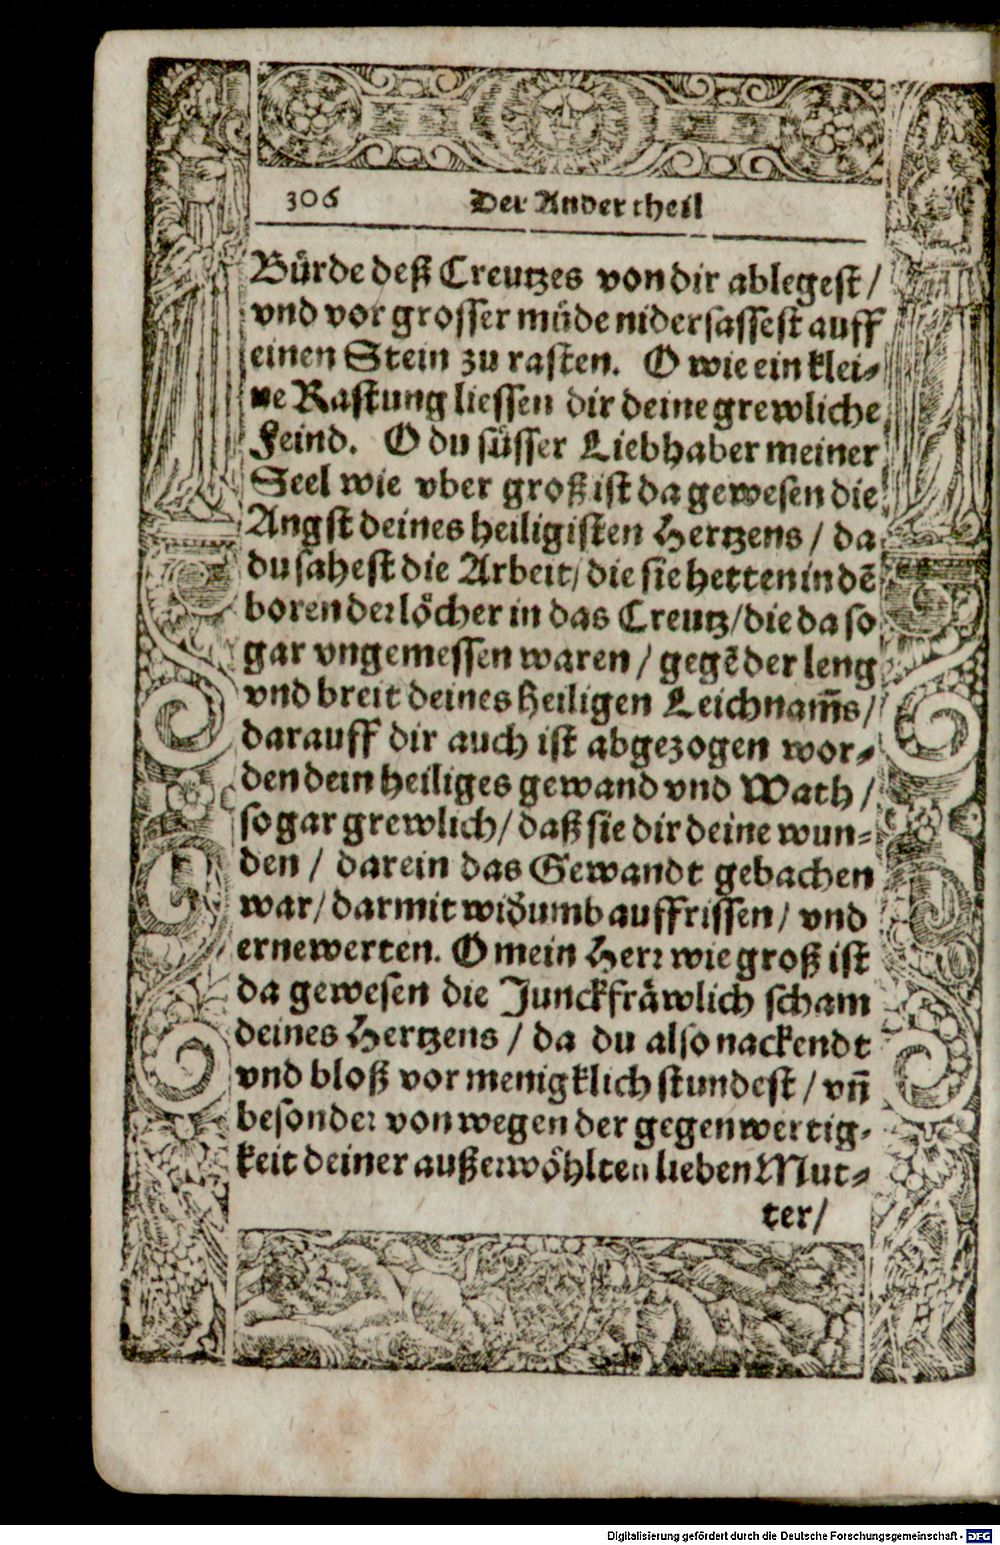 306 Der Ander theil
Bürde deß Creutzes von dir ablegest /
vnd vor grosser müde nidersassest auff
einen Stein zu rasten. O wie ein klei-
ne Rastung liessen dir deine grewliche
Feind. O du süsser Liebhaber meiner
Seel wie vber groß ist da gewesen die
Angst deines heiligisten Hertzens / da
du sahest die Arbeit / die sie hetten in dē
boren der löcher in das Creutz / die da so
gar vngemessen waren / gegē der leng
vnd breit deines heiligen Leichnam̄s /
darauff dir auch ist abgezogen wor-
den dein heiliges gewand vnd Wath /
so gar grewlich / daß sie dir deine wun-
den / darein das Gewandt gebachen
war / darmit widumb auffrissen / vnd
ernewerten. O mein Herr wie groß ist
da gewesen die Junckfräwlich scham
deines Hertzens / da du also nackendt
vnd bloß vor menigklich stundest / vn̄
besonder von wegen der gegenwertig-
keit deiner außerwöhlten lieben Mut-
ter /
Digitalisierung gefördert durch die Deutsche Forschungsgemeinschaft - DFG